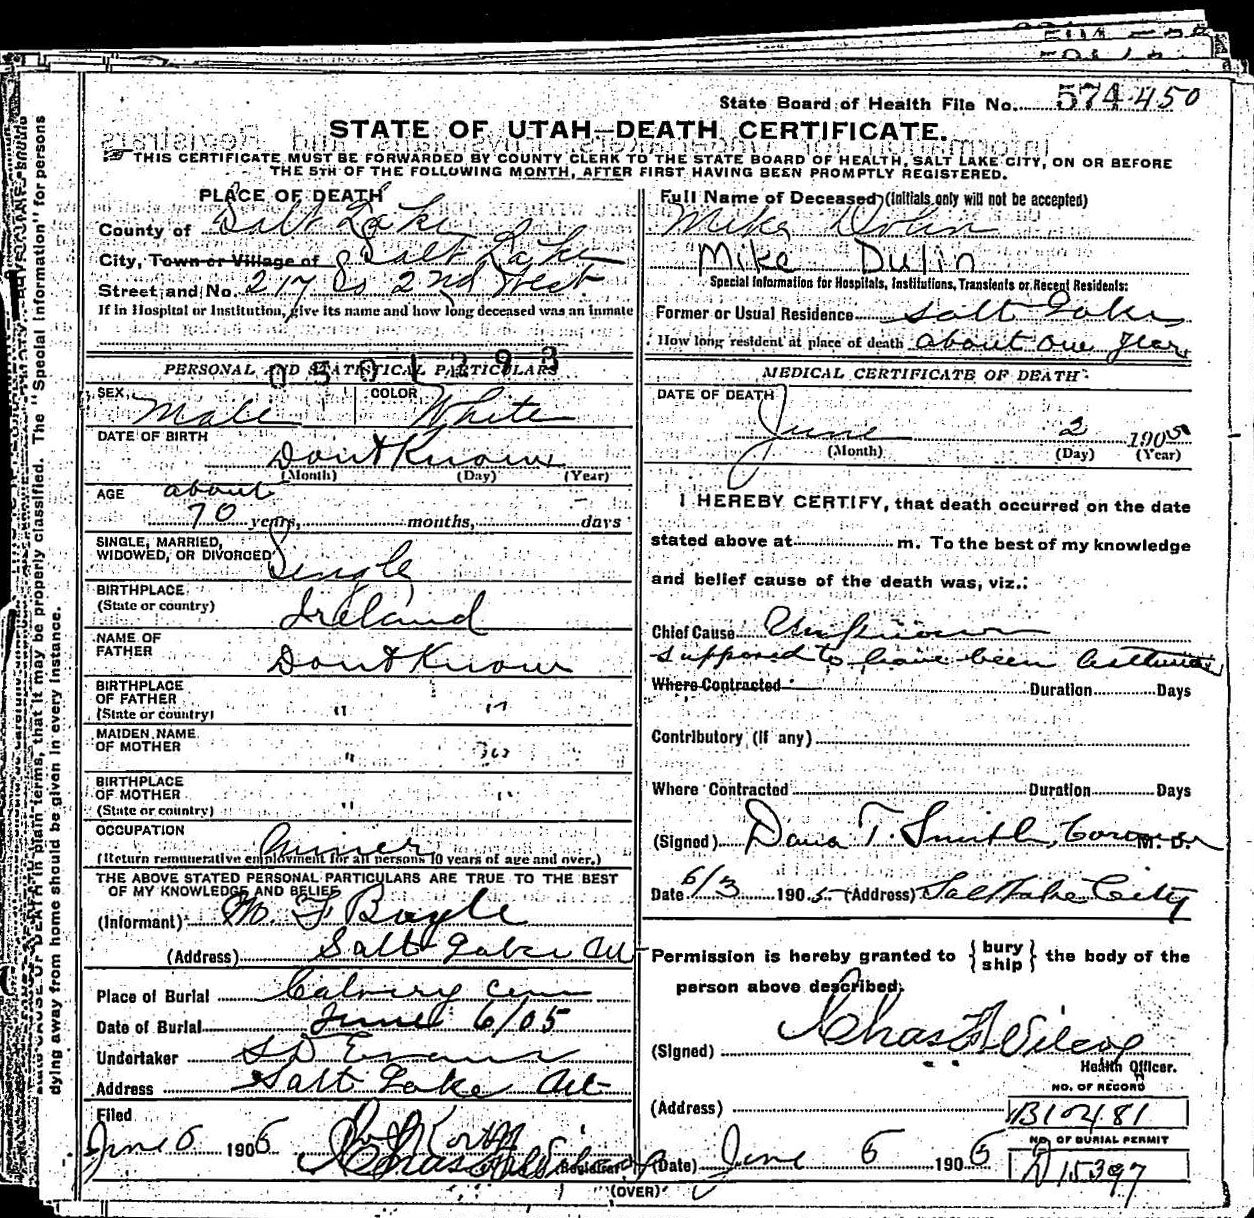 State Board of Health File No. 574-450
STATE OF UTAH—DEATH CERTIFICATE.
THIS CERTIFICATE MUST BE FORWARDED BY COUNTY CLERK TO THE STATE BOARD OF HEALTH, SALT LAKE CITY, ON OR BEFORE
THE 5TH OF THE FOLLOWING MONTH, AFTER FIRST HAVING BEEN PROMPTLY REGISTERED.
PLACE OF DEATH
County of Salt Lake
City, Town or Village of Salt Lake
Street and No. 217 So 2nd West
If in Hospital or Institution, give its name and how long deceased was an inmate
0501293
PERSONAL AND STATISTICAL PARTICULARS
SEX Male COLOR White
DATE OF BIRTH
Dont Know
(Month) (Day) (Year)
AGE about
70 years, months, days
SINGLE, MARRIED,
WIDOWED, OR DIVORCED Single
BIRTHPLACE
(State or country) Ireland
NAME OF
FATHER Dont Know
BIRTHPLACE
OF FATHER
(State or country) " "
MAIDEN NAME
OF MOTHER "
BIRTHPLACE
OF MOTHER
(State or country) " "
OCCUPATION Miner
(Return remunerative employment for all persons 10 years of age and over.)
THE ABOVE STATED PERSONAL PARTICULARS ARE TRUE TO THE BEST
OF MY KNOWLEDGE AND BELIEF
(Informant) M. F Boyle
(Address) Salt Lake Ut
Place of Burial Calvery Cem
Date of Burial June 6/05
Undertaker S D Evans
Address Salt Lake Ut
Filed
June 6 1905 Registrar
Full Name of Deceased (Initials only will not be accepted)
Mike
Mike Dulin
Special Information for Hospitals, Institutions, Transients or Recent Residents:
Former or Usual Residence Salt Lake
How long resident at place of death about one year
MEDICAL CERTIFICATE OF DEATH
DATE OF DEATH
June 2 1905
(Month) (Day) (Year)
I HEREBY CERTIFY, that death occurred on the date
stated above at m. To the best of my knowledge
and belief cause of the death was, viz.:
Chief Cause Unknown
supposed to have been Asthma
Where Contracted Duration Days
Contributory (if any)
Where Contracted Duration Days
(Signed) Dana T. Smith, Coroner M. D.
Date 6/3 1905 (Address) Salt Lake City
Permission is hereby granted to { bury ship } the body of the
person above described.
(Signed) Chas F Wilcox
Health Officer.
NO. OF RECORD
(Address) B10481
NO. OF BURIAL PERMIT
(Date) June 6 1905 D 15397
(OVER)
The "Special Information" for persons
dying away from home should be given in every instance.
state CAUSE OF DEATH in plain terms, that it may be properly classified.